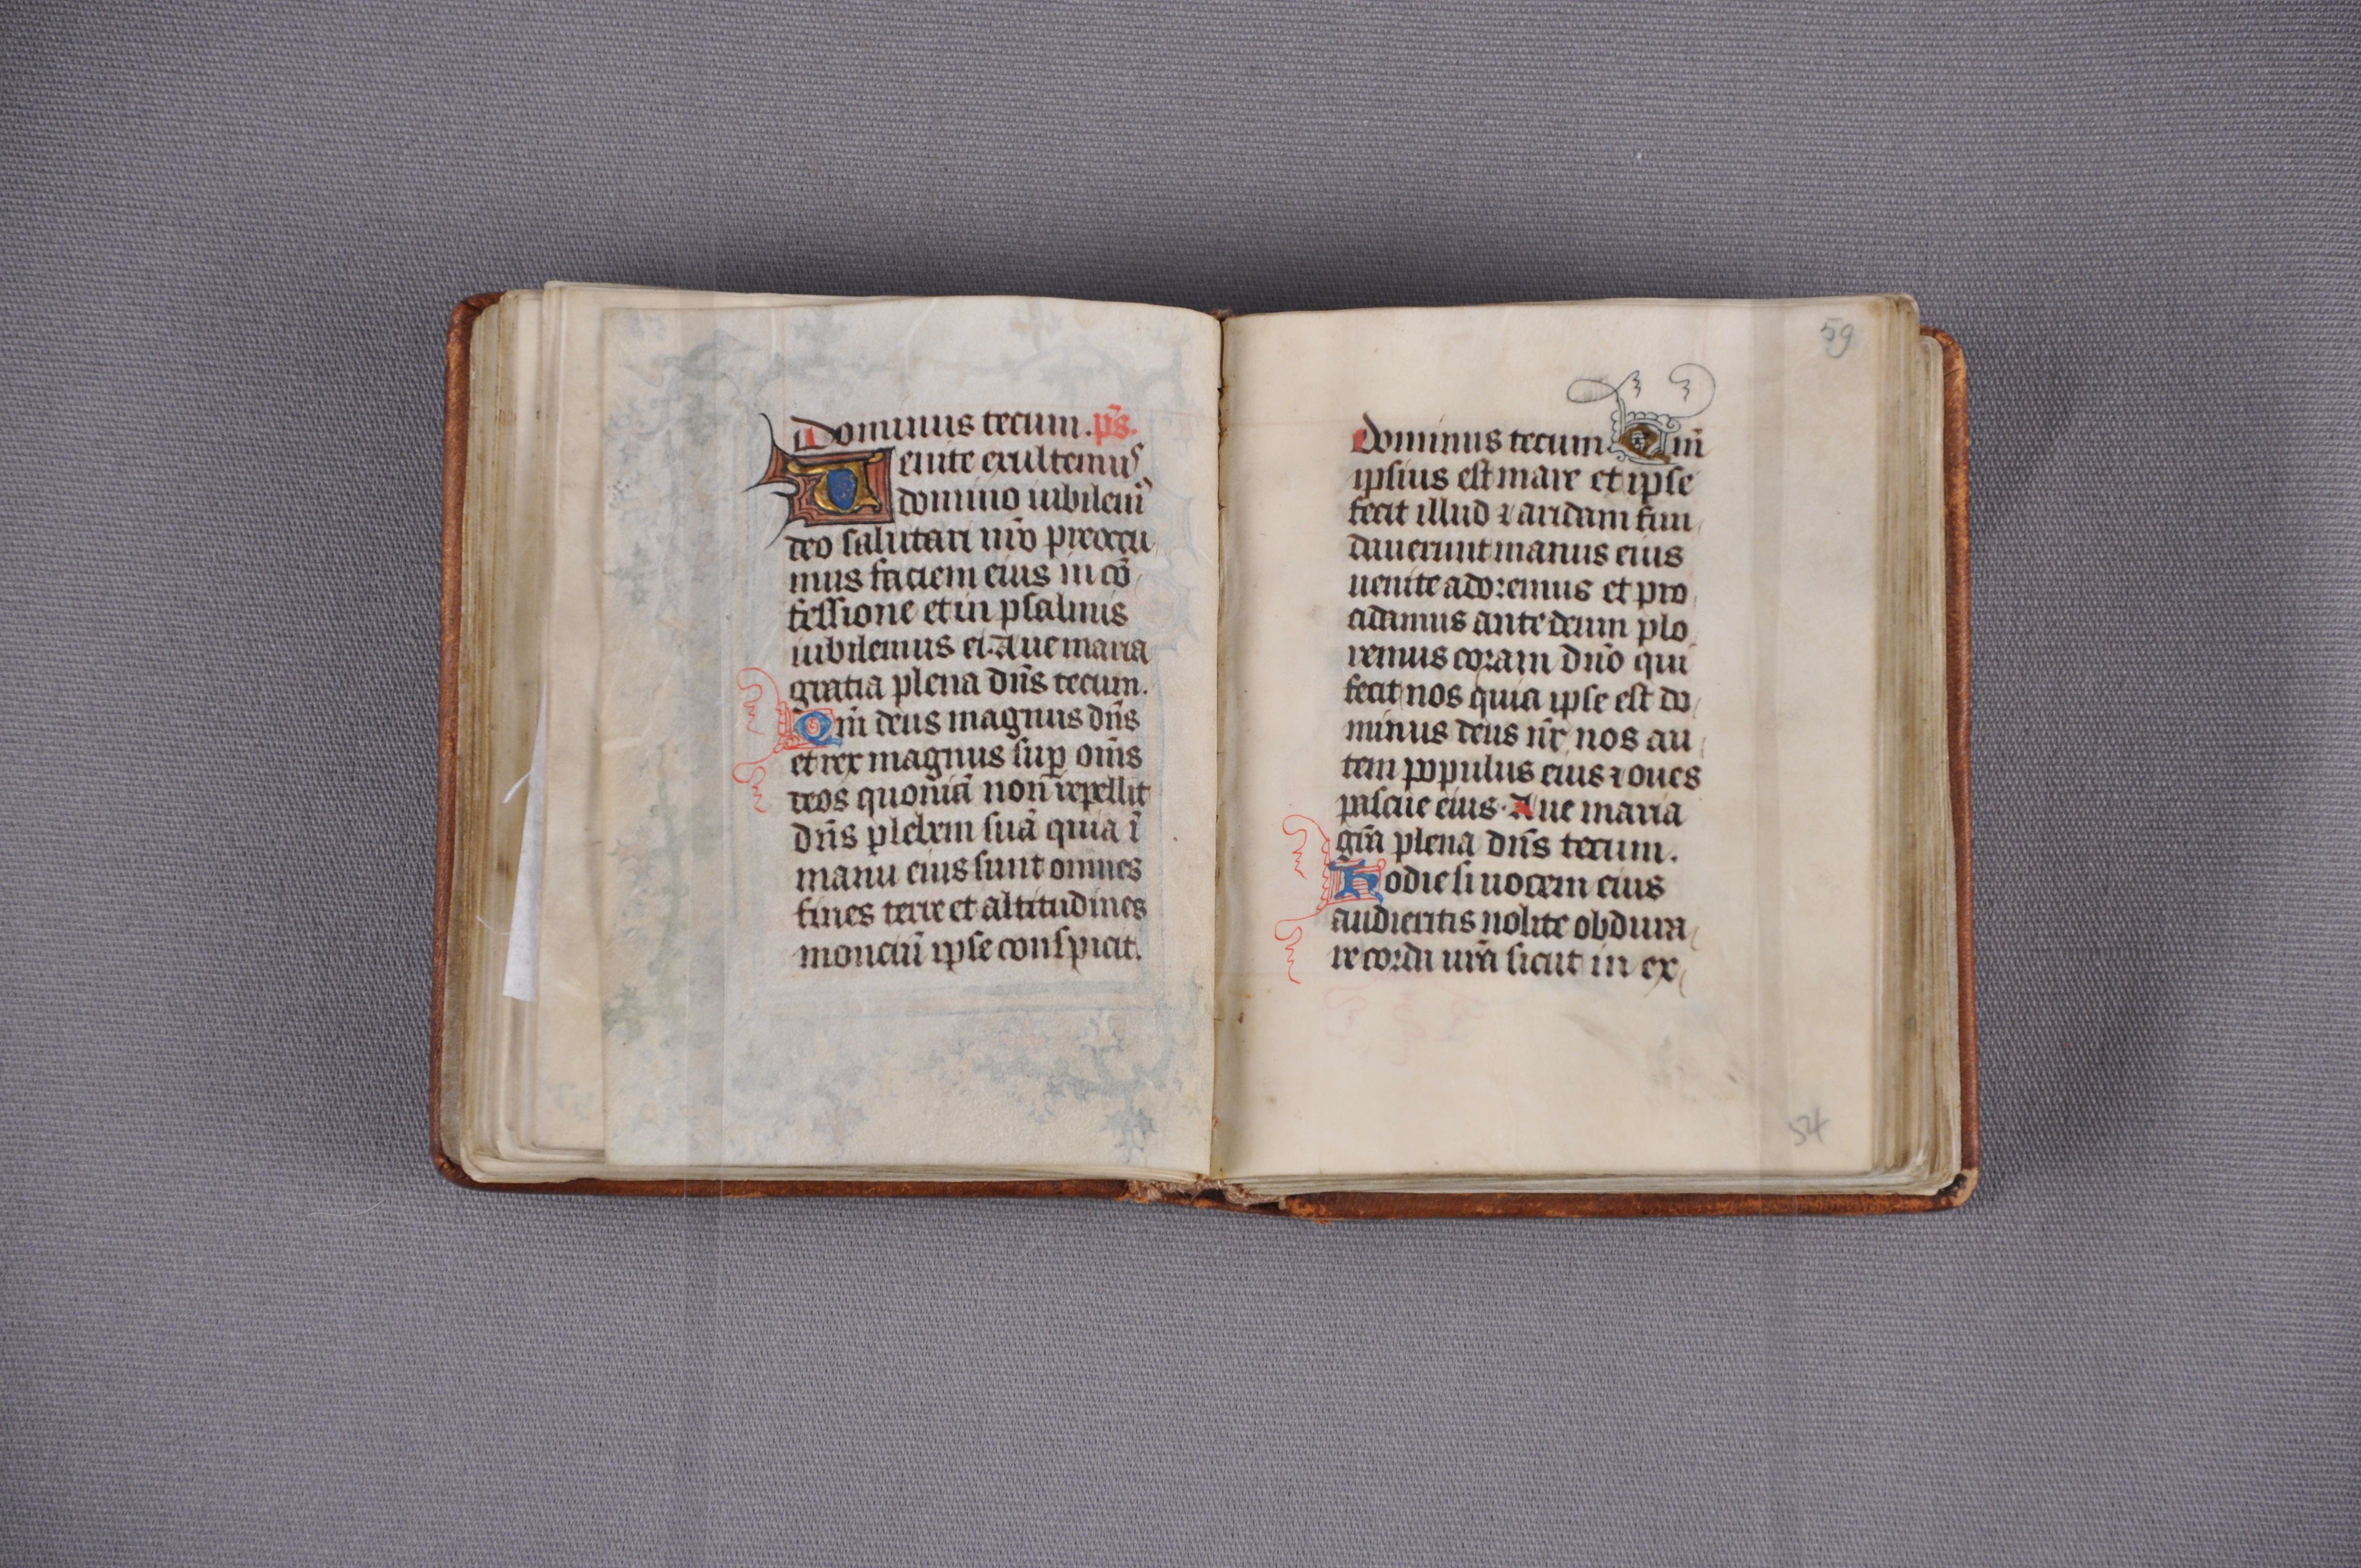 Dominus tecum. p̄s.
Venite exultemus
domino iubilem̄
deo salutari nr̄o preoccu
mus faciem eius in cō
fessione et in psalmis
iubilemus ei. Aue maria
gratia plena dn̄s tecum.
Qm̄ deus magnus dn̄s
et rex magnus sup om̄s
deos quoniā non repellit
dn̄s plebem suā quia ī
manu eius sunt omnes
fines terre et altitudines
monciū ipse conspicit.
59
Dominus tecum. Qm̄
ipsius est mare et ipse
fecit illud ⁊ aridam fun
dauerunt manus eius
uenite adoremus et pro
cidamus ante deum plo
remus coram dn̄o qui
fecit nos quia ipse est do
minus deus nr̄ nos au
tem populus eius ⁊ oues
pascue eius. Aue maria
gr̄a plena dn̄s tecum.
Hodie si uocem eius
audieritis nolite obdura
re corda ur̄a sicut in ex
54